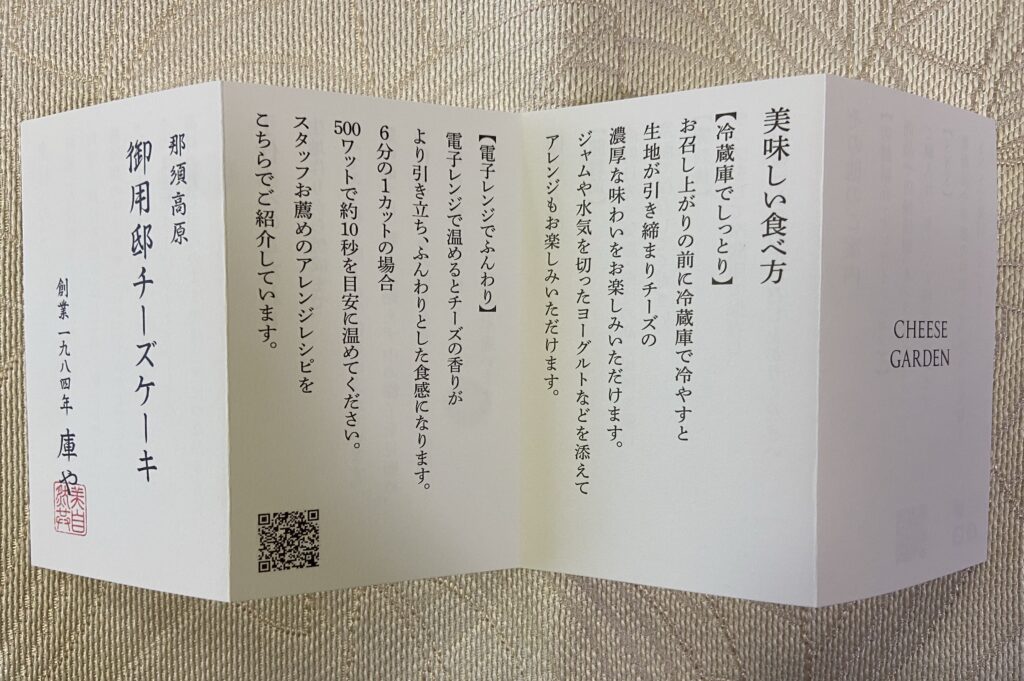 CHEESE
GARDEN
美味しい食べ方
【冷蔵庫でしっとり】
お召し上がりの前に冷蔵庫で冷やすと
生地が引き締まりチーズの
濃厚な味わいをお楽しみいただけます。
ジャムや水気を切ったヨーグルトなどを添えて
アレンジもお楽しみいただけます。
【電子レンジでふんわり】
電子レンジで温めるとチーズの香りが
より引き立ち、ふんわりとした食感になります。
6分の1カットの場合
500ワットで約10秒を目安に温めてください。
スタッフお薦めのアレンジレシピを
こちらでご紹介しています。
那須高原
御用邸チーズケーキ
創業一九八四年 庫や